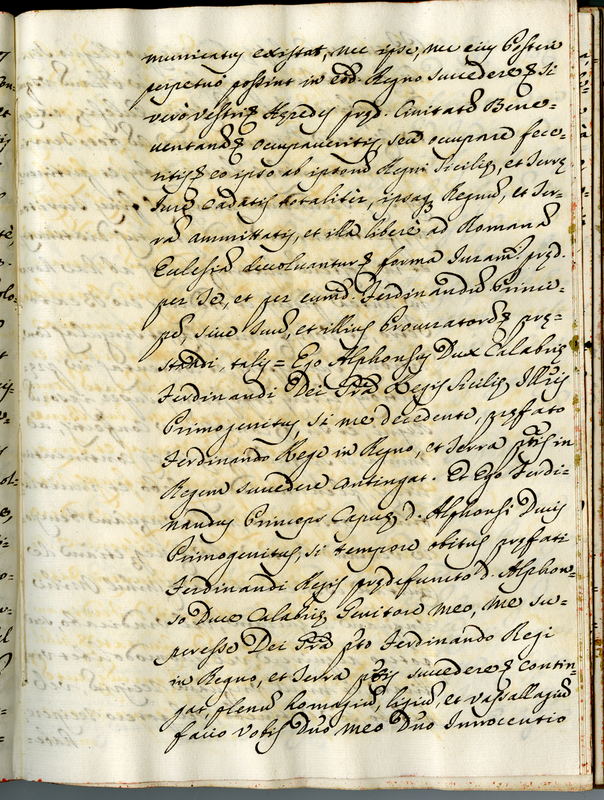 municatus existat, nec ipse, nec eius Posteri
perpetuò possint in eod. Regno succedere; Si
verò vestrū Hęredes pręd. Civitatē Bene-
ventanā occupaveritis, seu occupare fece-
ritis, eo ipso ab ipsorū Regni Sicilię, et Terrę
Iure cadatis totalitèr, ipsaq Regnū, et Ter-
rā ammittatis, et illa liberè ad Romanā
Eclesiā devolvantur; forma Iuram.ti pręd.
per Te, et per eumd. Ferdinandū Princi-
pē, sive Suū, et illius Procuratorē prę-
standi, talis = Ego Alphonsus Dux Calabrię
Ferdinandi Dei Grã Regis Sicilię Illris
Primogenitus, si me decedente, pręfato
Ferdinando Rege in Regno, et Terra ptis in
Regem succedere contingat. Et Ego Ferdi-
nandus Princeps Capuę d. Alphonsi Ducis
Primogenitus, si tempore obitus pręfati
Ferdinandi Regis prędefuncto d. Alphon-
so Duce Calabrię Genitore meo, me su-
peresse Dei Grã pto Ferdinando Regi
in Regno, et Terra ptis succedere contin-
gat, plenū homagiū, ligiū, et vassallagiū
facio Vobis Dño meo Dño Innocentio